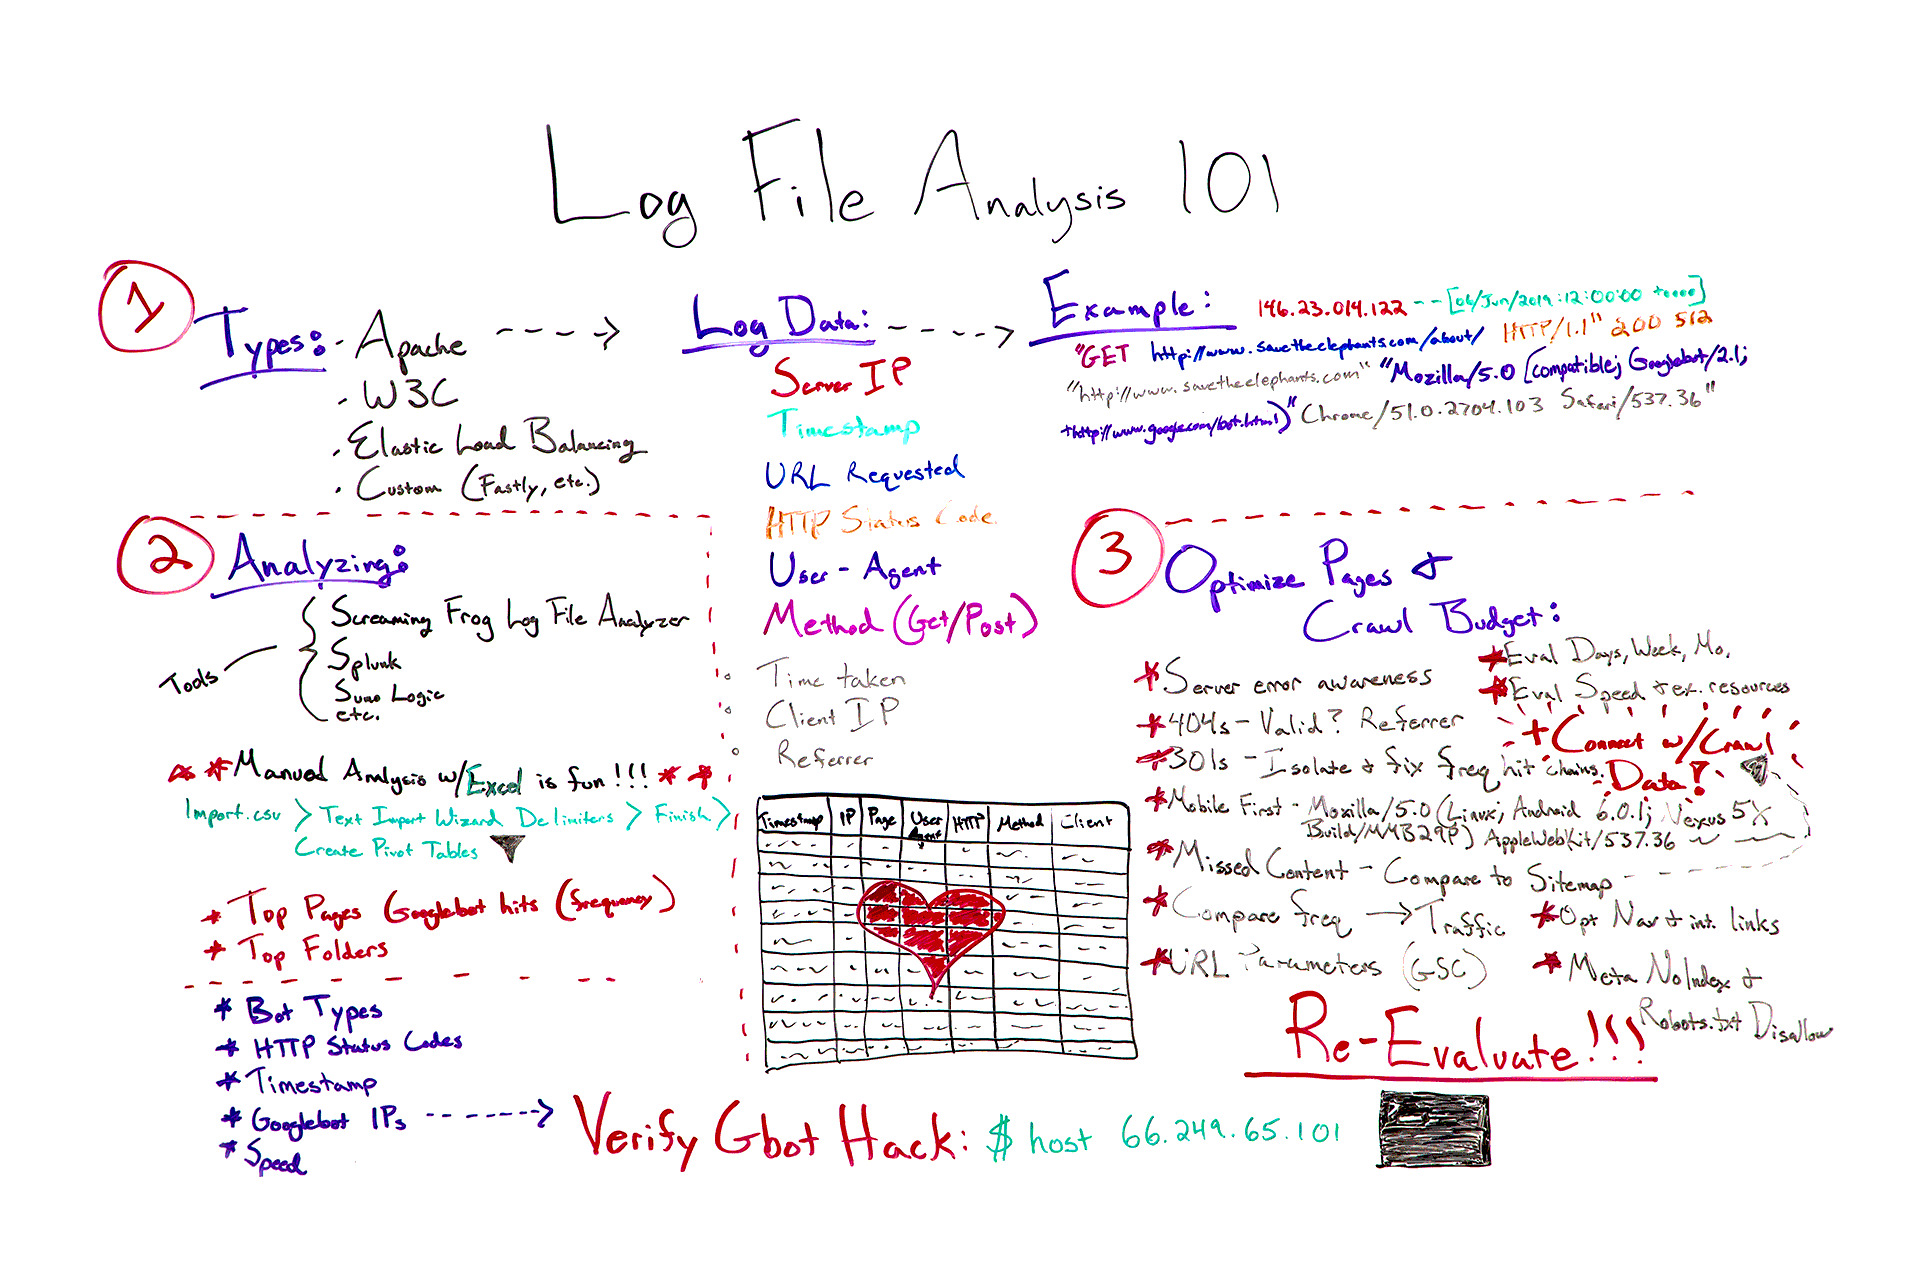 Log File Analysis 101
1
Types:
- Apache
- W3C
- Elastic Load Balancing
- Custom (Fastly, etc.)
Log Data:
Server IP
Timestamp
URL Requested
HTTP Status Code
User-Agent
Method (Get/Post)
Time taken
Client IP
Referrer
Example:
146.23.014.122 -- [06/Jun/2019:12:00:00 +0000]
"GET http://www.savetheelephants.com/about/ HTTP/1.1" 200 512
"http://www.savetheelephants.com" "Mozilla/5.0 [compatible; Googlebot/2.1;
+http://www.google.com/bot.html)" Chrome/51.0.2704.103 Safari/537.36"
2
Analyzing:
Tools
Screaming Frog Log File Analyzer
Splunk
Sumo Logic
etc.
** Manual Analysis w/Excel is fun!!! **
Import.csv > Text Import Wizard Delimiters > Finish >
Create Pivot Tables
* Top Pages (Googlebot hits (frequency)
* Top Folders
* Bot Types
* HTTP Status Codes
* Timestamp
* Googlebot IPs
* Speed
Timestamp IP Page User Agent HTTP Method Client
3
Optimize Pages +
Crawl Budget:
* Server error awareness
* 404s - Valid? Referrer
* 301s - Isolate + fix freq hit chains.
* Mobile First - Mozilla/5.0 (Linux; Android 6.0.1; Nexus 5X
Build/MMB29P) AppleWebKit/537.36
* Missed Content - Compare to Sitemap
* Compare freq → Traffic
* URL Parameters (GSC)
* Eval Days, Week, Mo.
* Eval Speed + ex. resources
+ Connect w/Crawl
Data!
* Opt Nav + int. links
* Meta NoIndex +
Robots.txt Disallow
Re-Evaluate!!!
Verify Gbot Hack: $ host 66.249.65.101